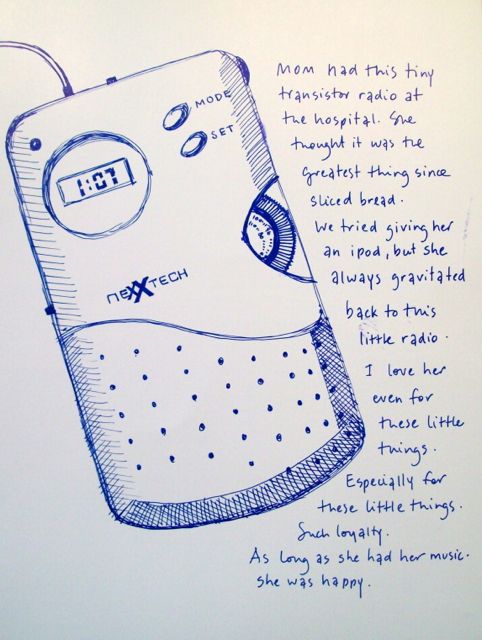 MODE
SET
1:07
neXXTECH
Mom had this tiny
transistor radio at
the hospital. She
thought it was the
greatest thing since
sliced bread.
We tried giving her
an ipod, but she
always gravitated
back to this
little radio.
I love her
even for
these little
things.
Especially for
these little things.
Such loyalty.
As long as she had her music.
she was happy.